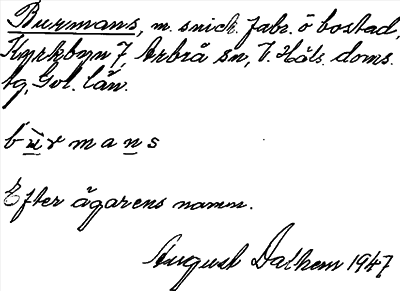 Burmans, m. snick. fabr. o bostad,
Kyrkbyn 7, Arbrå sn, V. Häls. doms.
tg, Gvl. län.
bùrmans
Efter ägarens namn.
August Dalhem 1947